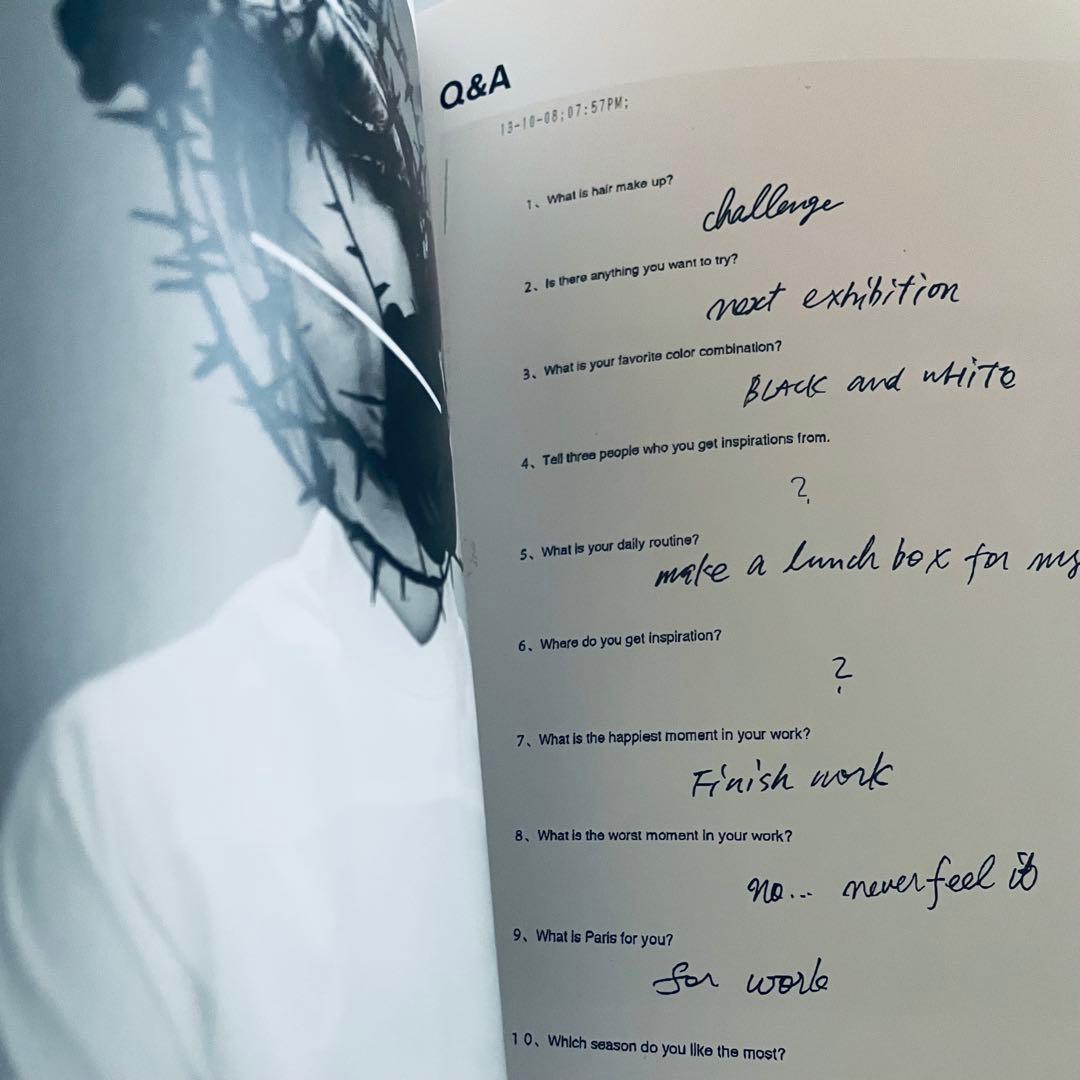 Q&A
13-10-08;07:57PM;
1、What is hair make up?
challenge
2、Is there anything you want to try?
next exhibition
3、What is your favorite color combination?
BLACK and wHiTe
4、Tell three people who you get inspirations from.
?
5、What is your daily routine?
make a lunch box for my
6、Where do you get inspiration?
?
7、What is the happiest moment in your work?
Finish work
8、What is the worst moment in your work?
no... never feel it
9、What is Paris for you?
for work
10、Which season do you like the most?